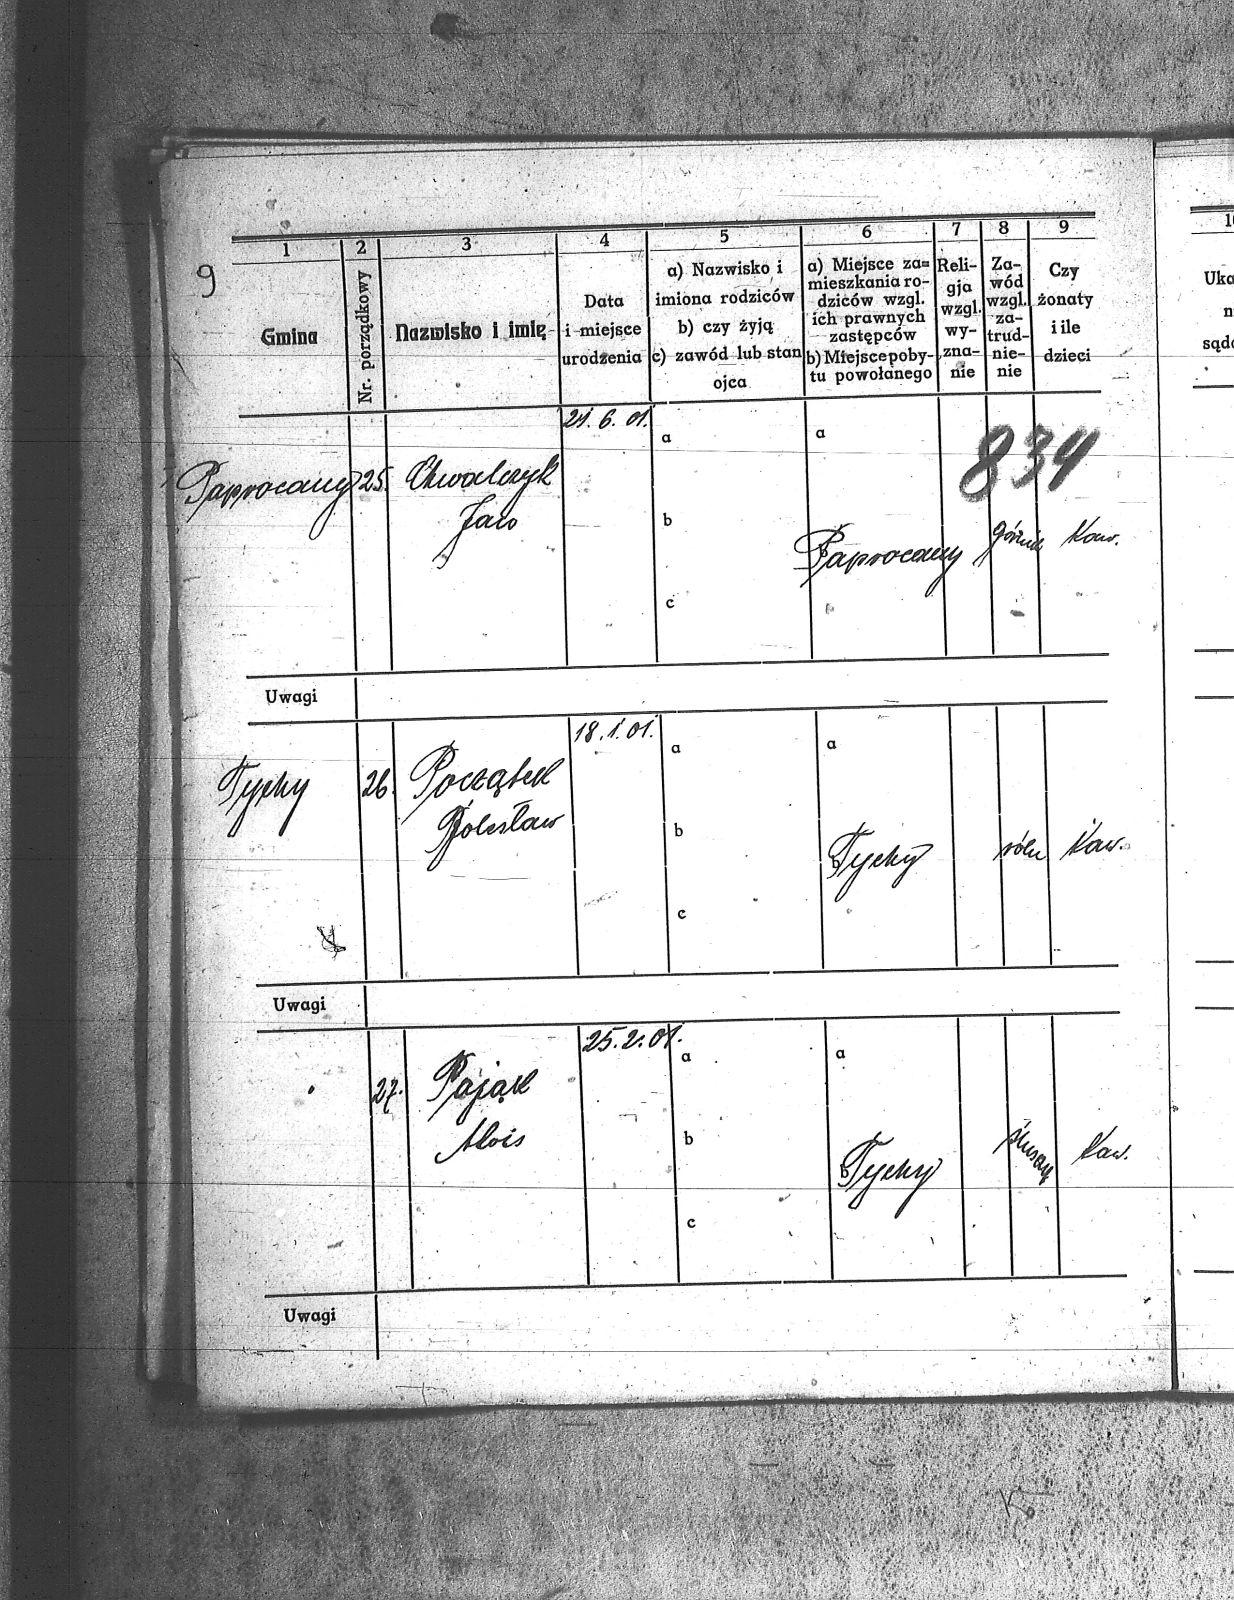 9
1 2 3 4 5 6 7 8 9
Gmina
Nr. porządkowy
Nazwisko i imię
Data
i miejsce
urodzenia
a) Nazwisko i
imiona rodziców
b) czy żyją
c) zawód lub stan
ojca
a) Miejsce za=
mieszkania ro-
dziców wzgl.
ich prawnych
zastępców
b) Miejsce poby-
tu powołanego
Reli-
gja
wzgl.
wy-
zna-
nie
Za-
wód
wzgl.
za-
trud-
nie-
nie
Czy
żonaty
i ile
dzieci
10
Uka
n
sądo
21. 6. 01.
a a
834
Paprocany 25. Chwalczyk
Jan
b
b Paprocany górnik Kaw.
c
Uwagi
18. 1. 01.
a a
Tychy 26. Początek
Bolesław
b
b Tychy roln Kaw.
c
Uwagi
25. 2. 01.
a a
27. Pająk
Alois
b
b Tychy Kaw.
c
Uwagi